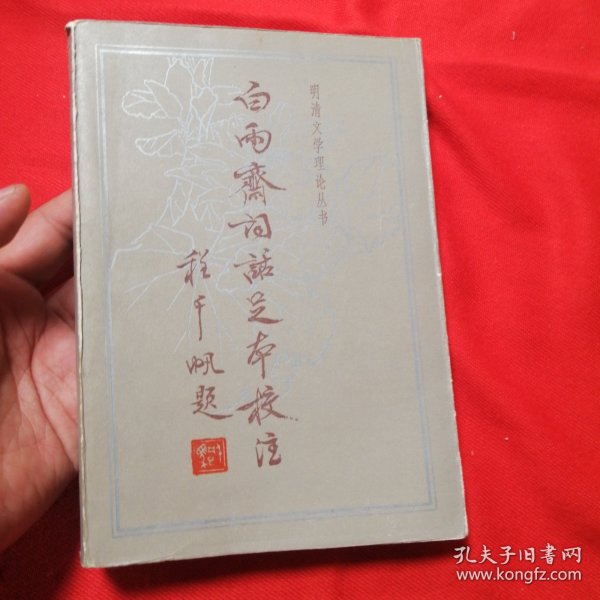 明清文学理论丛书
白雨齋词話足本校注
程千帆题
孔夫子旧書网
www.kongfz.com